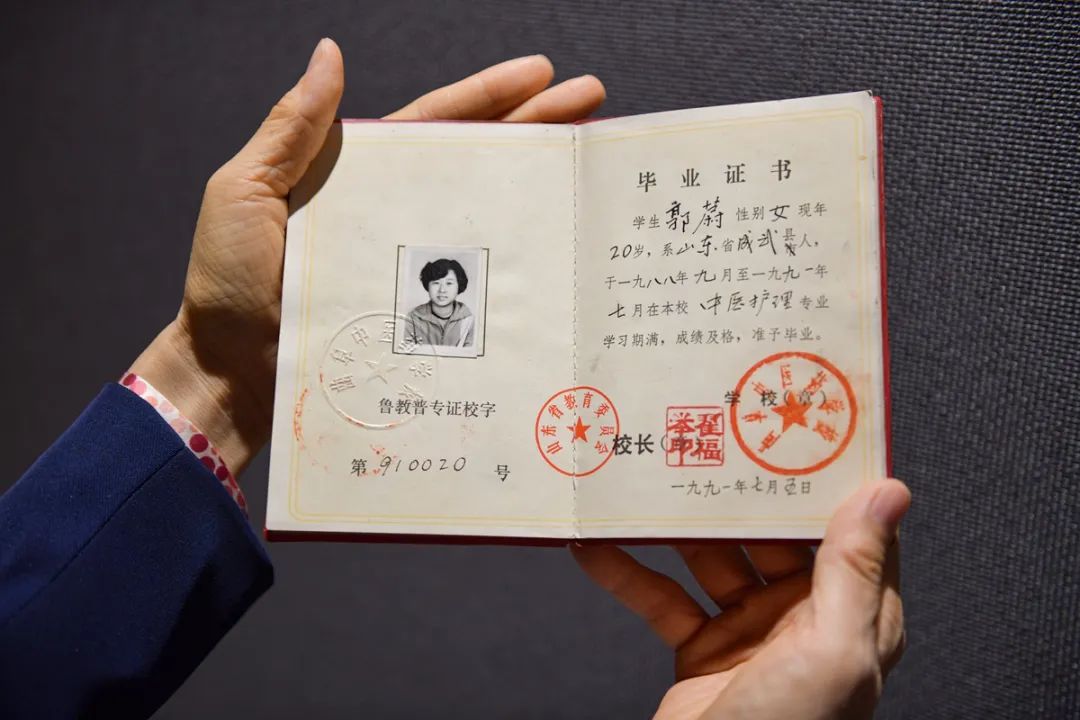 鲁教普专证校字
第910020号
山东省教育委员会
毕业证书
学生郭蔚性别女现年
20岁,系山东省成武县人,
于一九八八年九月至一九九一年
七月在本校中医护理专业
学习期满,成绩及格,准予毕业。
学校(章)
校长(章)
翟福举印
一九九一年七月五日